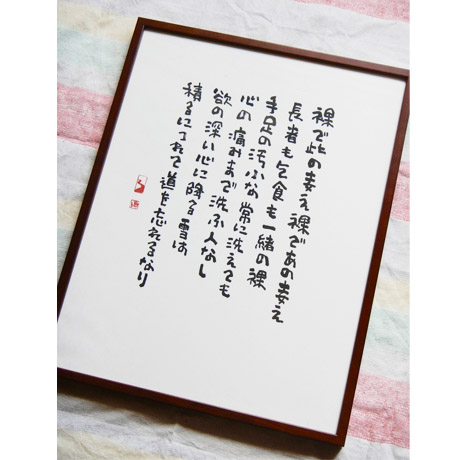 裸で此の娑え裸であの娑え
長者も乞食も一緒の裸
手足の汚ふな常に洗えても
心の痛みまで洗ふ人なし
欲の深い心に降る雪は
積るにつれて道を忘れるなり